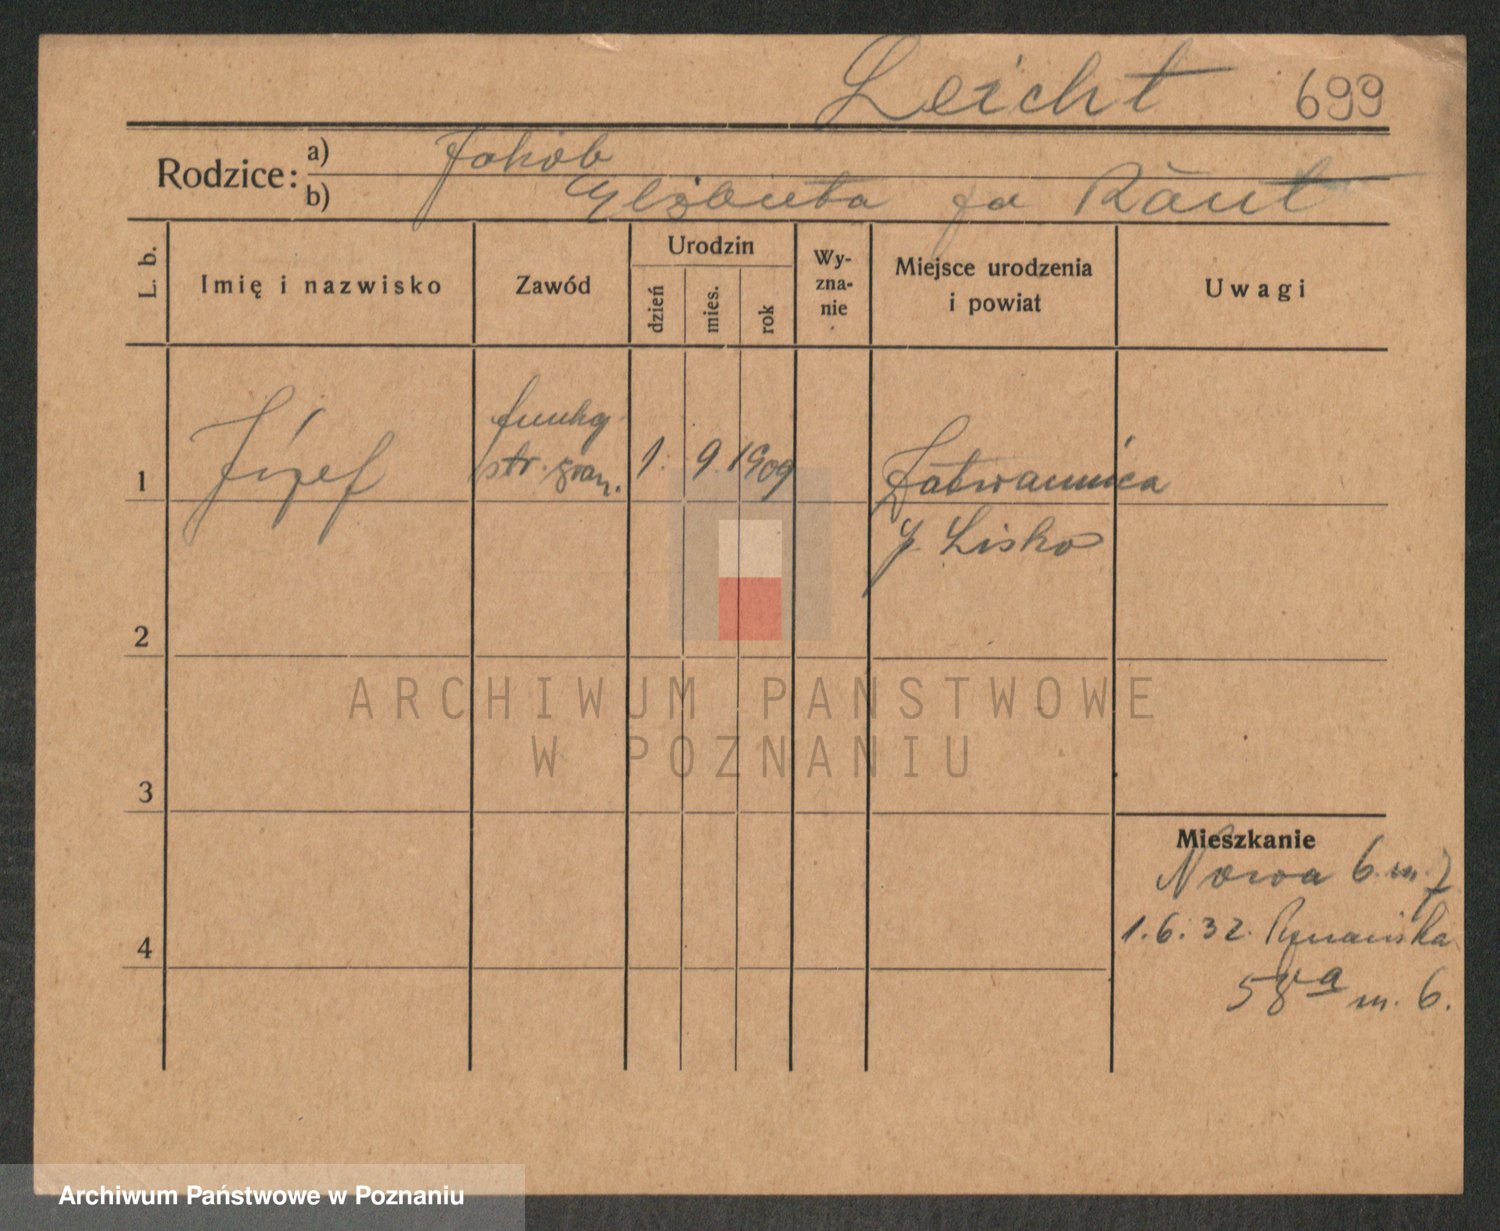 Leicht 699
Rodzice:
a) Jakób
b) Elżbieta
L. b.
Imię i nazwisko
Zawód
Urodzin
dzień
mies.
rok
Wy-
zna-
nie
Miejsce urodzenia
i powiat
Uwagi
1
Józef
str. gran.
1. 9. 1909
Zatwarnica
p. Lisko
2
3
4
Mieszkanie
Nowa 6 m. 7
1.6.32.
58a m. 6.
ARCHIWUM PAŃSTWOWE
W POZNANIU
Archiwum Państwowe w Poznaniu